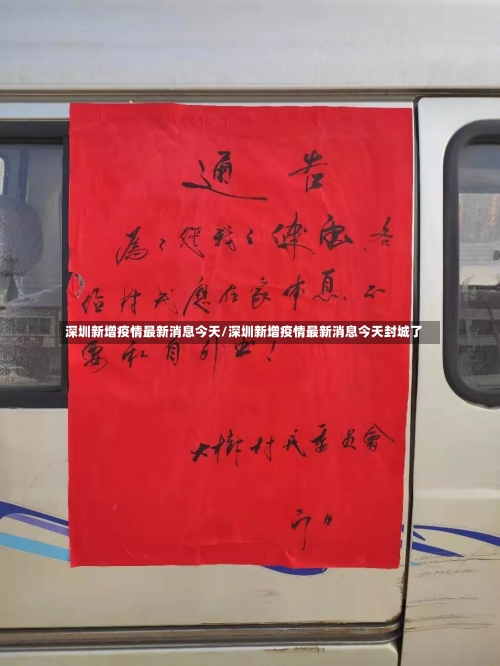 通告
為了您我之健康,各
位村民應在家休息,不
深圳新增疫情最新消息今天/深圳新增疫情最新消息今天封城了
要私自外出!
大樹村民委員會
即日